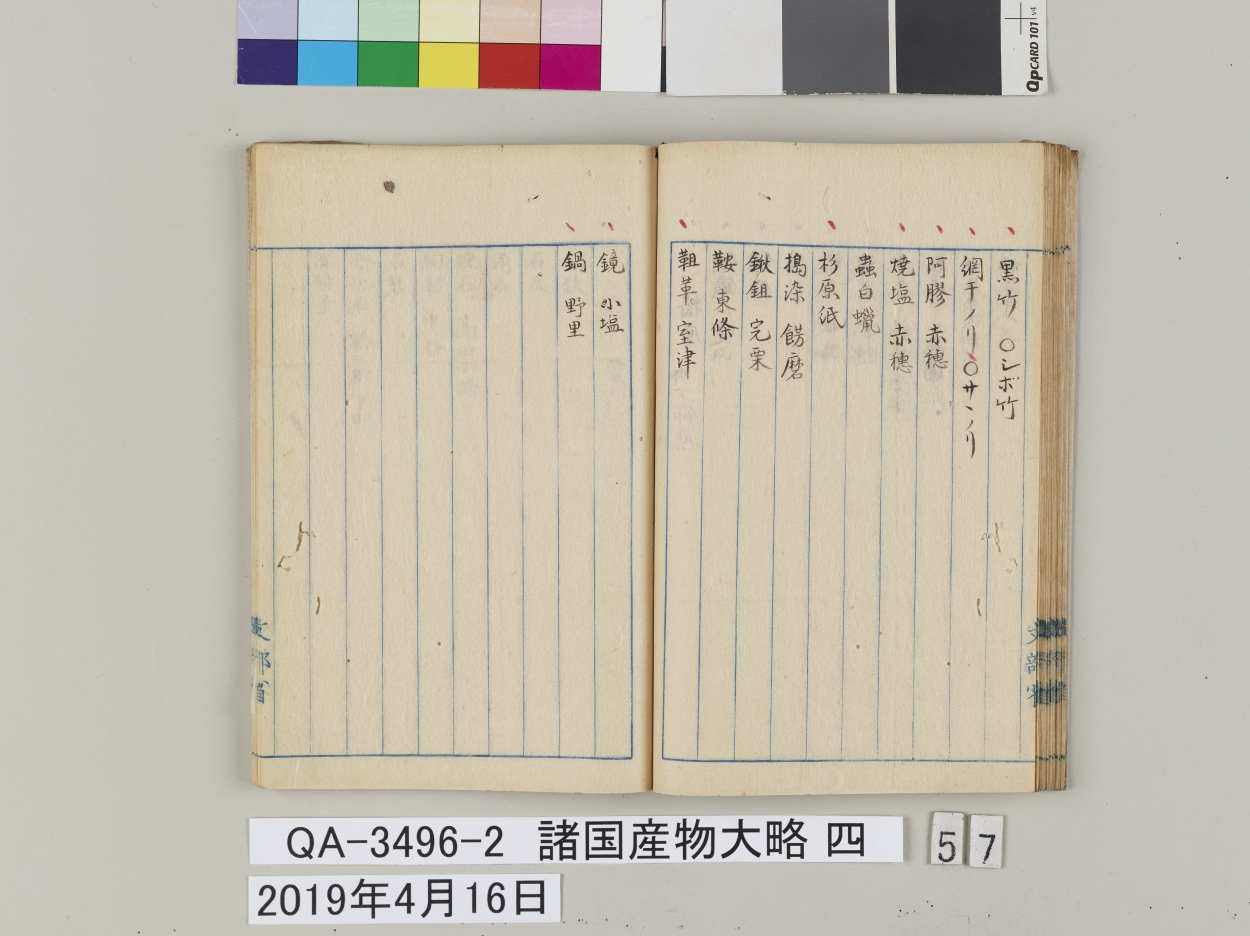 QpCARD 101 v4
黒竹 〇シボ竹
網干ノリ〇サヽノリ
阿膠 赤穂
焼塩 赤穂
蟲白蠟
杉原紙
搗染 餝磨
鍬鉏 完粟
鞍 東條
靼革 室津
鏡 小塩
鍋 野里
文部省
文部省
QA-3496-2 諸国産物大略 四
57
2019年4月16日